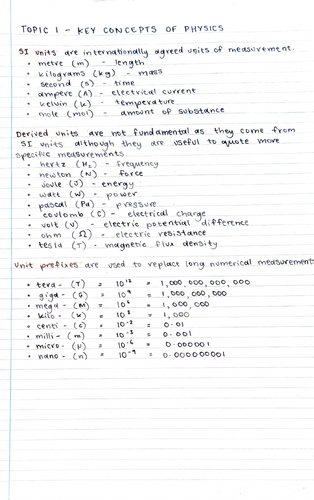 TOPIC 1 - KEY CONCEPTS OF PHYSICS
SI units are internationally agreed units of measurement.
• metre (m) - length
• kilograms (kg) - mass
• second (s) - time
• ampere (A) - electrical current
• kelvin (k) - temperature
• mole (mol) - amount of substance
Derived units are not fundamental as they come from
SI units although they are useful to quote more
specific measurements.
• hertz (Hz) - frequency
• newton (N) - force
• joule (J) - energy
• watt (W) - power
• pascal (Pa) - pressure
• coulomb (C) - electrical charge
• volt (V) - electric potential difference
• ohm (Ω) - electric resistance
• tesla (T) - magnetic flux density
Unit prefixes are used to replace long numerical measurement
• tera - (T) = 10¹² = 1,000,000,000,000
• giga - (G) = 10⁹ = 1,000,000,000
• mega - (M) = 10⁶ = 1,000,000
• kilo - (k) = 10³ = 1,000
• centi - (c) = 10⁻² = 0.01
• milli - (m) = 10⁻³ = 0.001
• micro - (μ) = 10⁻⁶ = 0.000001
• nano - (n) = 10⁻⁹ = 0.000000001